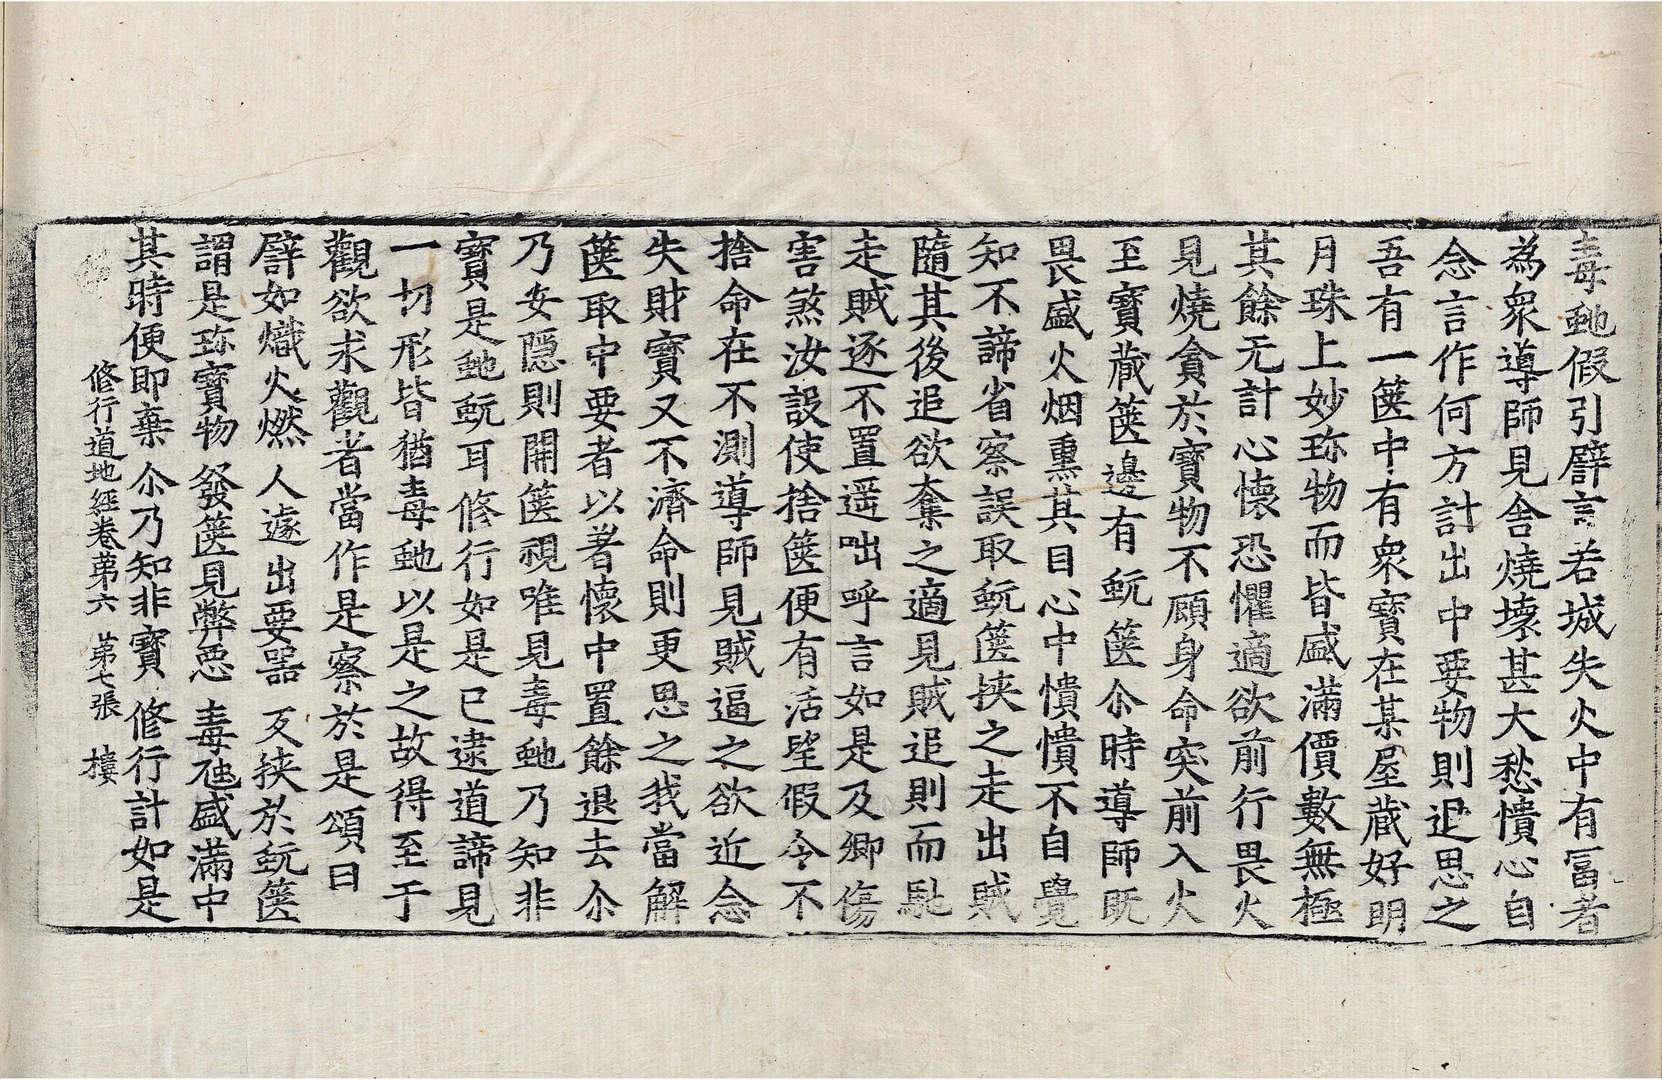 毒虵假引譬言若城失火中有冨者
為衆導師見舍燒壞甚大愁憒心自
念言作何方計出中要物則退思之
吾有一篋中有衆寶在某屋藏好明
月珠上妙珎物而皆盛滿價數無極
其餘无計心懷恐懼適欲前行畏火
見燒貪於寶物不顧身命突前入火
至寶藏篋邊有蚖篋尒時導師旣
畏盛火烟熏其目心中憒憒不自覺
知不諦省察誤取蚖篋挾之走出賊
隨其後追欲奪之適見賊追則而馳
走賊逐不置遥咄呼言如是及卿傷
害煞汝設使捨篋便有活望假令不
捨命在不測導師見賊逼之欲近念
失財寶又不濟命則更思之我當解
篋取中要者以著懷中置餘退去尒
乃安隱則開篋視唯見毒虵乃知非
寶是虵蚖耳修行如是已逮道諦見
一切形皆猶毒虵以是之故得至于
觀欲求觀者當作是察於是頌曰
譬如熾火燃 人遽出要器 叐挾於蚖篋
謂是珎寶物 發篋見弊悪 毒虵盛滿中
其時便即棄 尒乃知非寶 修行計如是
修行道地經卷第六 第七張 樓